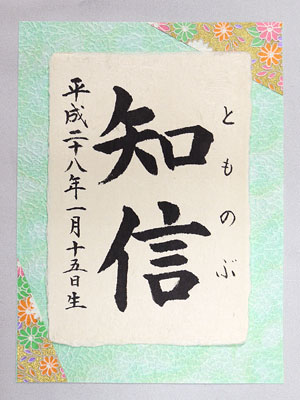 とものぶ
知信
平成二十八年一月十五日生